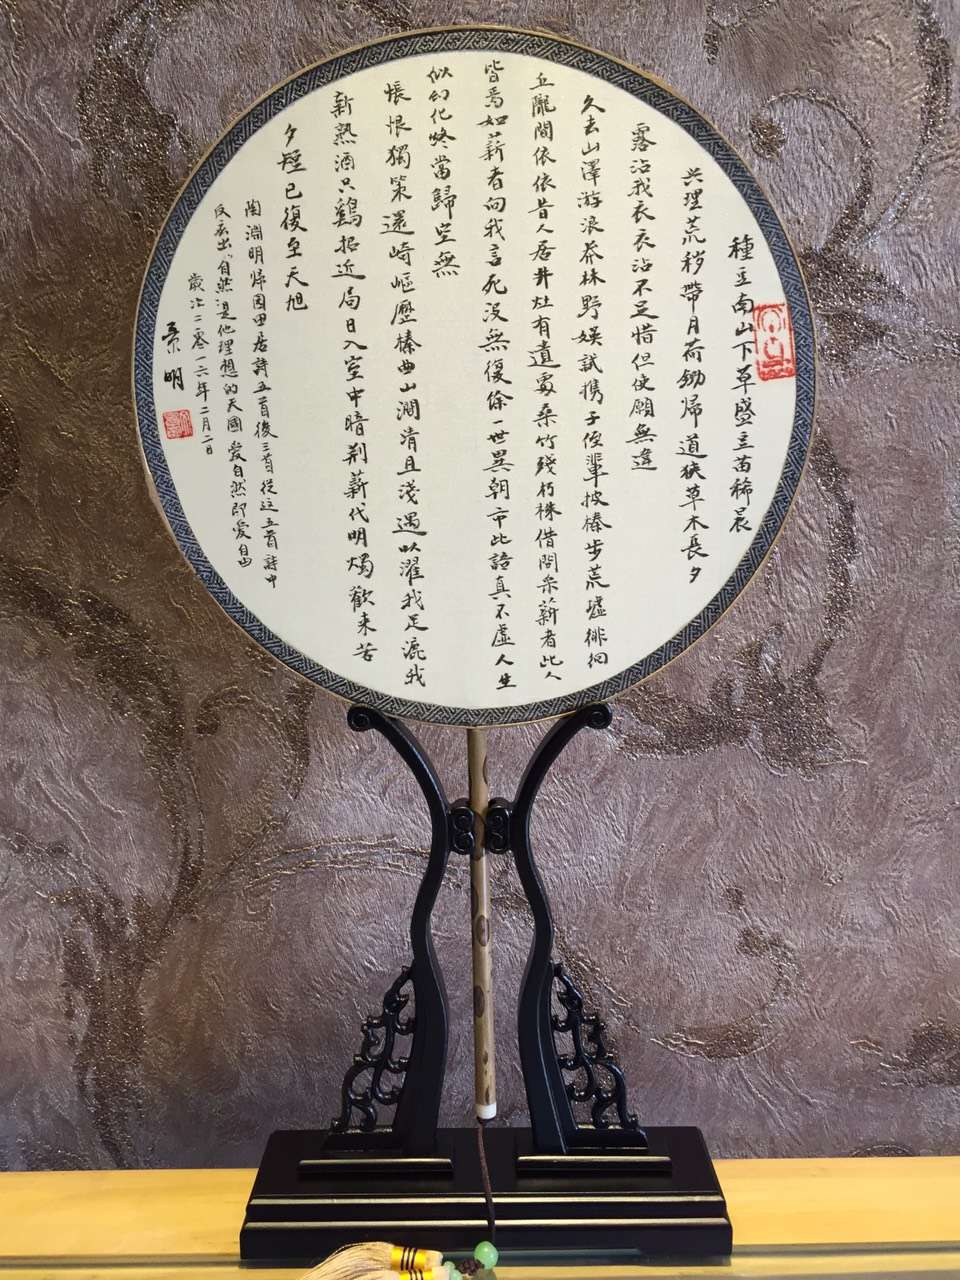 種豆南山下草盛豆苗稀晨
兴理荒秽帶月荷鋤歸道狹草木長夕
露沾我衣衣沾不足惜但使願無違
久去山澤游浪莽林野娱試携子侄輩披榛步荒墟徘徊
丘隴間依依昔人居井灶有遺處桑竹殘朽株借問采薪者此人
皆焉如薪者向我言死没無復馀一世異朝市此語真不虚人生
似幻化終當歸空無
悵恨獨策還崎嶇歷榛曲山澗清且淺遇以濯我足漉我
新熟酒只鷄招近局日入室中暗荆薪代明燭歡来苦
夕短已復至天旭
陶淵明歸園田居詩五首後三首從這五首詩中
反应出"自然"是他理想的天國 爱自然即爱自由
歲次二零一六年二月二日
明